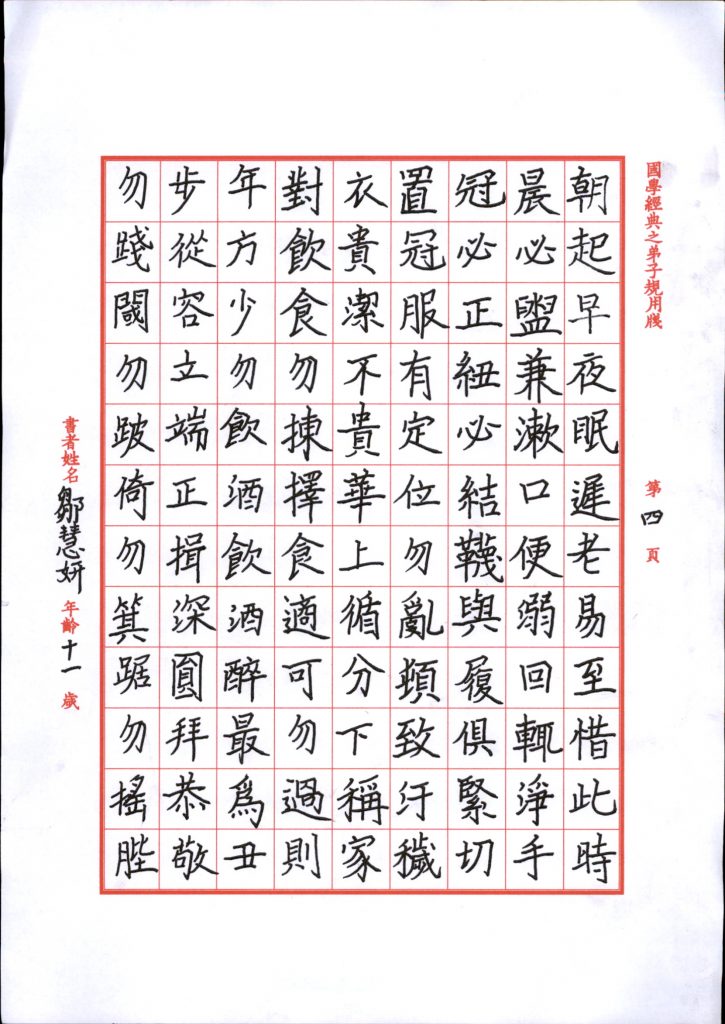 國學經典之弟子規用牋
第四頁
朝起早夜眠遲老易至惜此時
晨必盥兼漱口便溺回輒淨手
冠必正紐必結襪與履俱緊切
置冠服有定位勿亂頓致汙穢
衣貴潔不貴華上循分下稱家
對飲食勿揀擇食適可勿過則
年方少勿飲酒飲酒醉最爲丑
步從容立端正揖深圓拜恭敬
勿踐閾勿跛倚勿箕踞勿搖髀
書者姓名鄒慧妍年齡十一歲